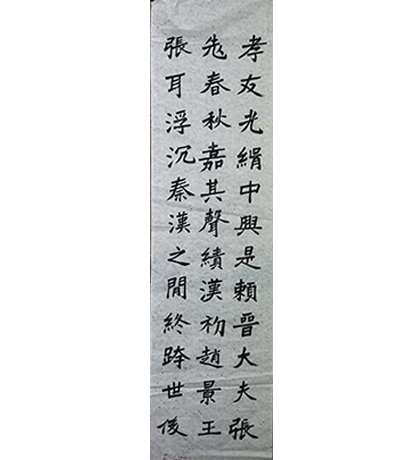 孝友光緝中興是賴晉大夫張
老春秋嘉其聲績漢初趙景王
張耳浮沉秦漢之間終跨世後